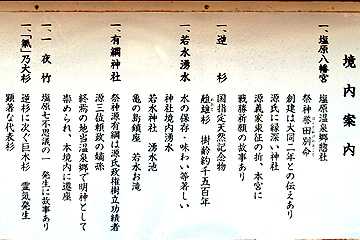 境内案内
一、塩原八幡宮 塩原温泉郷総社
祭神 誉田別命
創建は大同二年との伝えあり
源氏に縁深い神社
源義家東征の折、本宮に
戦勝祈願の故事あり
一、逆杉 国指定天然記念物
雌雄杉 樹齢約千五百年
一、若水湧水 水の保存・味わい等著しい
神社境内湧水
若水神社 湧水池
亀の島鎮座 若水お滝
一、有綱神社 祭神源有綱は源氏政権樹立功績者
源三位頼政の嫡孫
終焉の地当温泉郷で明神として
崇められ、本境内に遷座
一、一夜竹 塩原七不思議の一 発生に故事あり
一、「氣」乃丈杉 逆杉に次ぐ巨木杉 霊気発生
顕著な代表杉